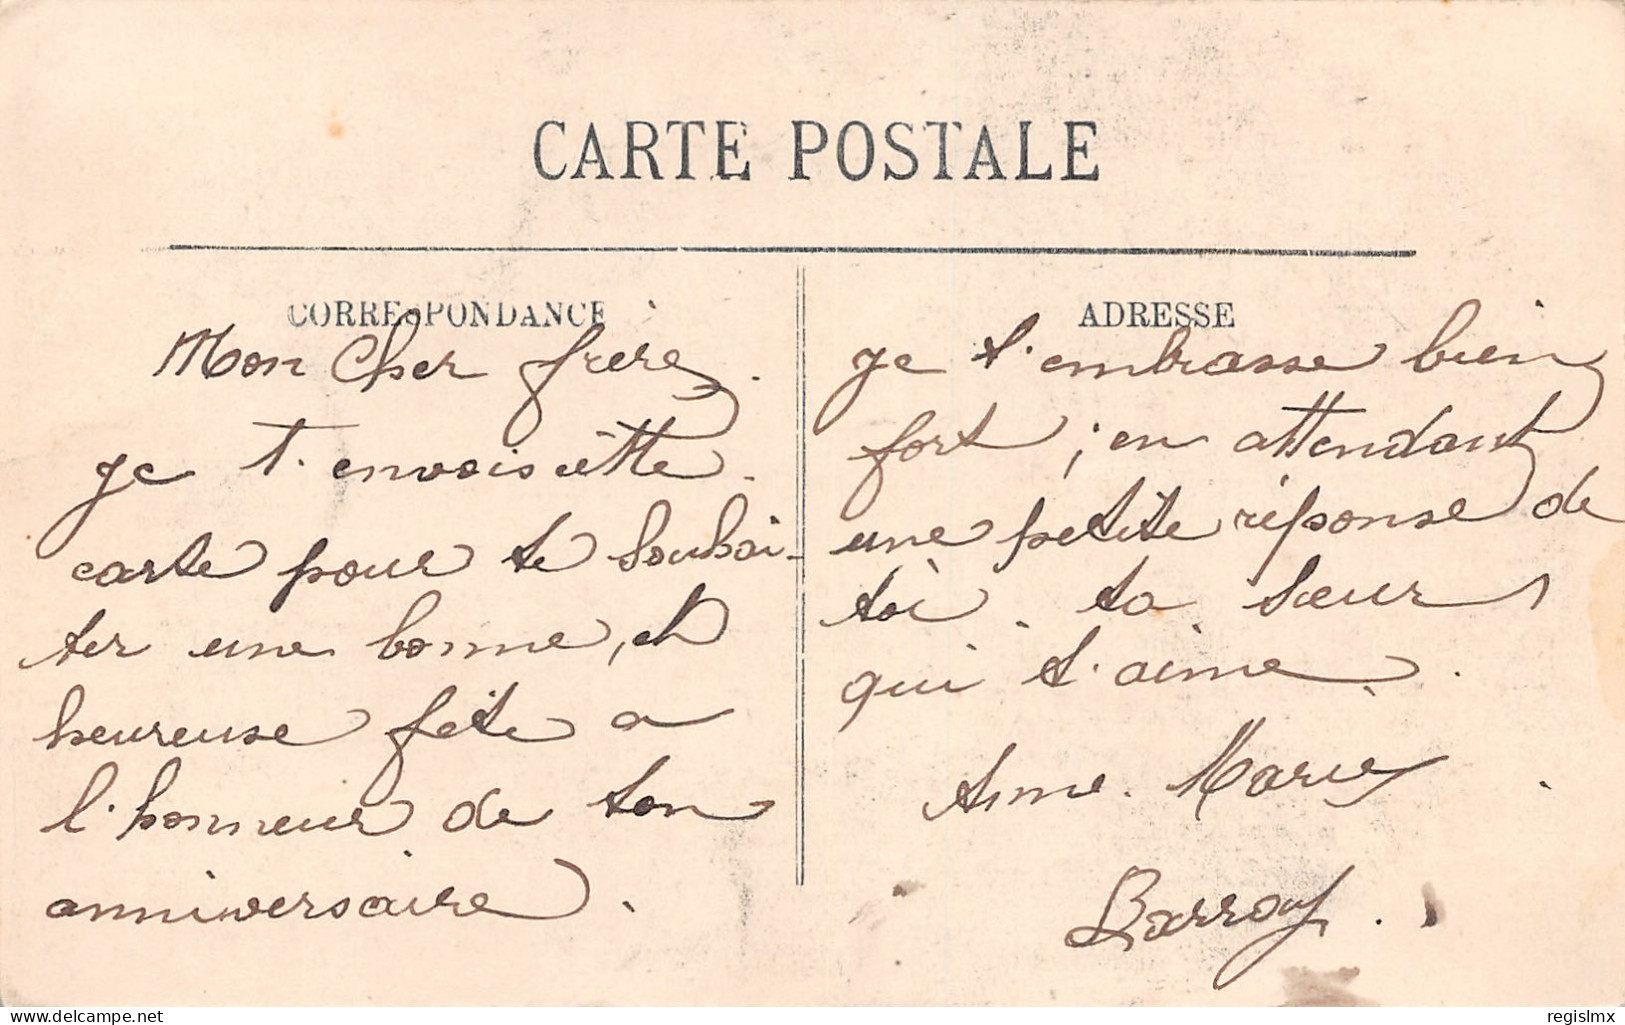 CARTE POSTALE
CORRESPONDANCE
Mon Cher frere
je t'envois cette
carte pour te souhai-
ter une bonne, et
heureuse fête a
l'honneur de ton
anniversaire.
ADRESSE
je t'embrasse bien
fort ; en attendant
une petite réponse de
toi. ta sœur
qui t'aime.
Anne. Marie
Barroy.
www.delcampe.net
regislmx